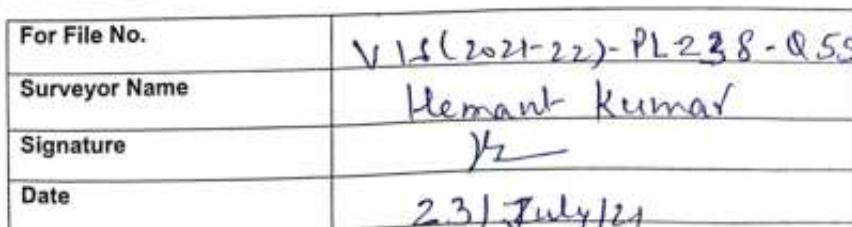 For File No. VIS(2021-22)-PL238-Q55
Surveyor Name Hemant Kumar
Signature
Date 23/July/21